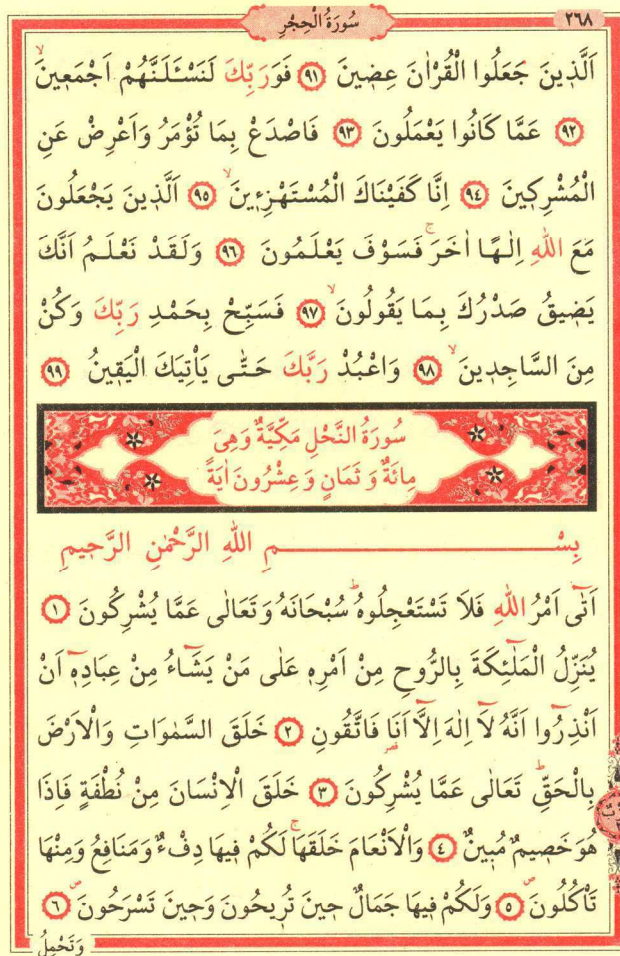 سُورَةُ الْحِجْرِ ٢٦٨
اَلَّذ۪ينَ جَعَلُوا الْقُرْاٰنَ عِض۪ينَ ٩١ فَوَرَبِّكَ لَنَسْـَٔلَنَّهُمْ اَجْمَع۪ينَۙ
٩٢ عَمَّا كَانُوا يَعْمَلُونَ ٩٣ فَاصْدَعْ بِمَا تُؤْمَرُ وَاَعْرِضْ عَنِ
الْمُشْرِك۪ينَ ٩٤ اِنَّا كَفَيْنَاكَ الْمُسْتَهْزِء۪ينَۙ ٩٥ اَلَّذ۪ينَ يَجْعَلُونَ
مَعَ اللّٰهِ اِلٰهًا اٰخَرَۚ فَسَوْفَ يَعْلَمُونَ ٩٦ وَلَقَدْ نَعْلَمُ اَنَّكَ
يَض۪يقُ صَدْرُكَ بِمَا يَقُولُونَۙ ٩٧ فَسَبِّحْ بِحَمْدِ رَبِّكَ وَكُنْ
مِنَ السَّاجِد۪ينَۙ ٩٨ وَاعْبُدْ رَبَّكَ حَتّٰى يَأْتِيَكَ الْيَق۪ينُ ٩٩
سُورَةُ النَّحْلِ مَكِّيَّةٌ وَهِىَ
مِائَةٌ وَ ثَمَانٍ وَ عِشْرُونَ اٰيَةً
بِسْمِ اللّٰهِ الرَّحْمٰنِ الرَّح۪يمِ
اَتٰٓى اَمْرُ اللّٰهِ فَلَا تَسْتَعْجِلُوهُۜ سُبْحَانَهُ وَتَعَالٰى عَمَّا يُشْرِكُونَ ١
يُنَزِّلُ الْمَلٰٓئِكَةَ بِالرُّوحِ مِنْ اَمْرِه۪ عَلٰى مَنْ يَشَٓاءُ مِنْ عِبَادِه۪ٓ اَنْ
اَنْذِرُٓوا اَنَّهُ لَٓا اِلٰهَ اِلَّٓا اَنَا۬ فَاتَّقُونِ ٢ خَلَقَ السَّمٰوَاتِ وَالْاَرْضَ
بِالْحَقِّۜ تَعَالٰى عَمَّا يُشْرِكُونَ ٣ خَلَقَ الْاِنْسَانَ مِنْ نُطْفَةٍ فَاِذَا
هُوَ خَص۪يمٌ مُب۪ينٌ ٤ وَالْاَنْعَامَ خَلَقَهَاۚ لَكُمْ ف۪يهَا دِفْءٌ وَمَنَافِعُ وَمِنْهَا
تَأْكُلُونَۖ ٥ وَلَكُمْ ف۪يهَا جَمَالٌ ح۪ينَ تُر۪يحُونَ وَح۪ينَ تَسْرَحُونَۖ ٦
وَتَحْمِلُ